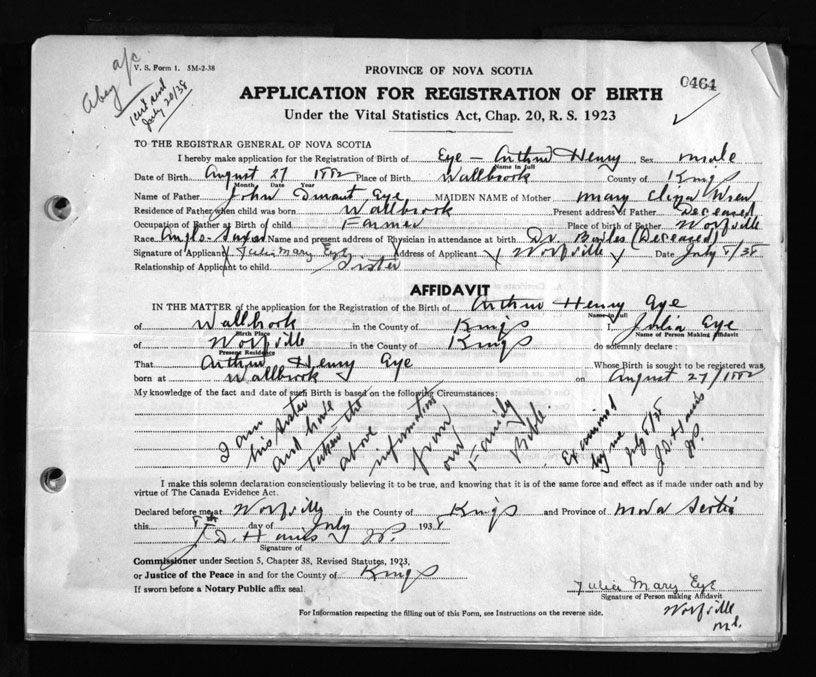 V. S. Form 1. 5M-2-38
a/c
July 20/38
PROVINCE OF NOVA SCOTIA
0464
APPLICATION FOR REGISTRATION OF BIRTH
Under the Vital Statistics Act, Chap. 20, R. S. 1923
TO THE REGISTRAR GENERAL OF NOVA SCOTIA
I hereby make application for the Registration of Birth of Eye - Arthur Henry Sex male
Name in full
Date of Birth August 27 1882 Place of Birth Wallbrook County of Kings
Month Date Year
Name of Father John Eye MAIDEN NAME of Mother Mary Eliza
Residence of Father when child was born Wallbrook Present address of Father Deceased
Occupation of Father at Birth of child Farmer Place of birth of Father Wolfville
Race Anglo-Saxon Name and present address of Physician in attendance at birth Dr. (Deceased)
Signature of Applicant Julia Mary Eye Address of Applicant Wolfville Date July 8/38
Relationship of Applicant to child Sister
AFFIDAVIT
IN THE MATTER of the application for the Registration of the Birth of Arthur Henry Eye
Name in full
of Wallbrook in the County of Kings I, Julia Eye
Birth Place Name of Person Making Affidavit
of Wolfville in the County of Kings do solemnly declare:
Present Residence
That Arthur Henry Eye Whose Birth is sought to be registered was
born at Wallbrook on August 27/1882
My knowledge of the fact and date of such Birth is based on the following Circumstances:
I am
his sister
and have
taken the
above
information
from
our
Family
Bible.
Examined
by me
July 8/38
J D Harris
JP.
I make this solemn declaration conscientiously believing it to be true, and knowing that it is of the same force and effect as if made under oath and by
virtue of The Canada Evidence Act.
Declared before me at Wolfville in the County of Kings and Province of Nova Scotia
this 8th day of July 1938
J. D. Harris JP.
Signature of
Commissioner under Section 5, Chapter 38, Revised Statutes, 1923,
or Justice of the Peace in and for the County of Kings
If sworn before a Notary Public affix seal.
Julia Mary Eye
Signature of Person making Affidavit
Wolfville
N.S.
For Information respecting the filling out of this Form, see Instructions on the reverse side.